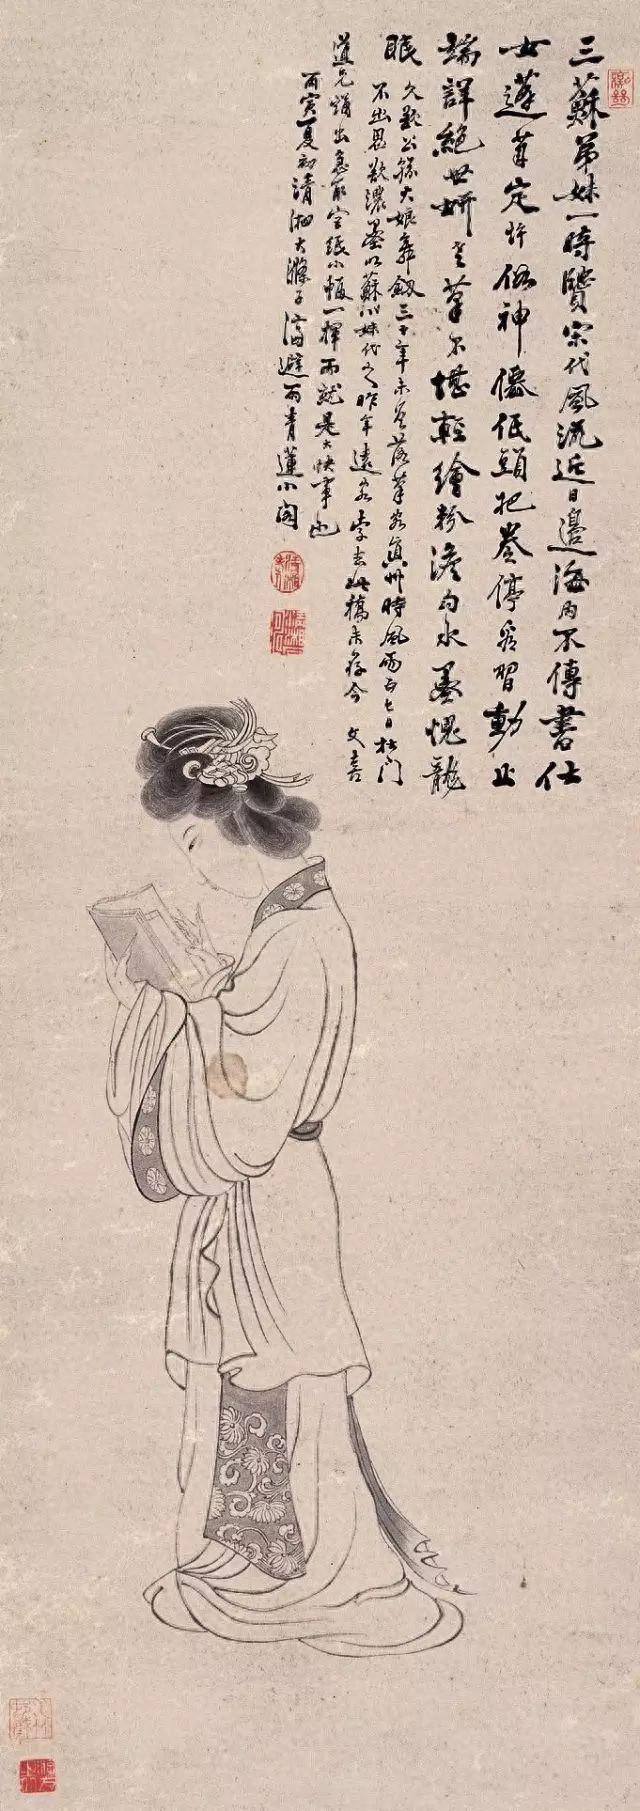 三蘇弟妹一時賢宋代風流近日邊海內不傳書仕
女蓬萊定許神僊低頭把卷停看習動止
端詳絕世妍老筆不堪輕繪粉澹勻水墨愧龍
眠
久欲公孫大娘舞劍三十年未曾落筆客真州時風雨五七日杜門
不出思欲濃墨以蘇小妹代之昨年遠客李去此稿未存今文喜
道兄出意取宣紙小幅一揮而就是大快事也
丙寅夏初清湘大滌子濟避雨青蓮小閣